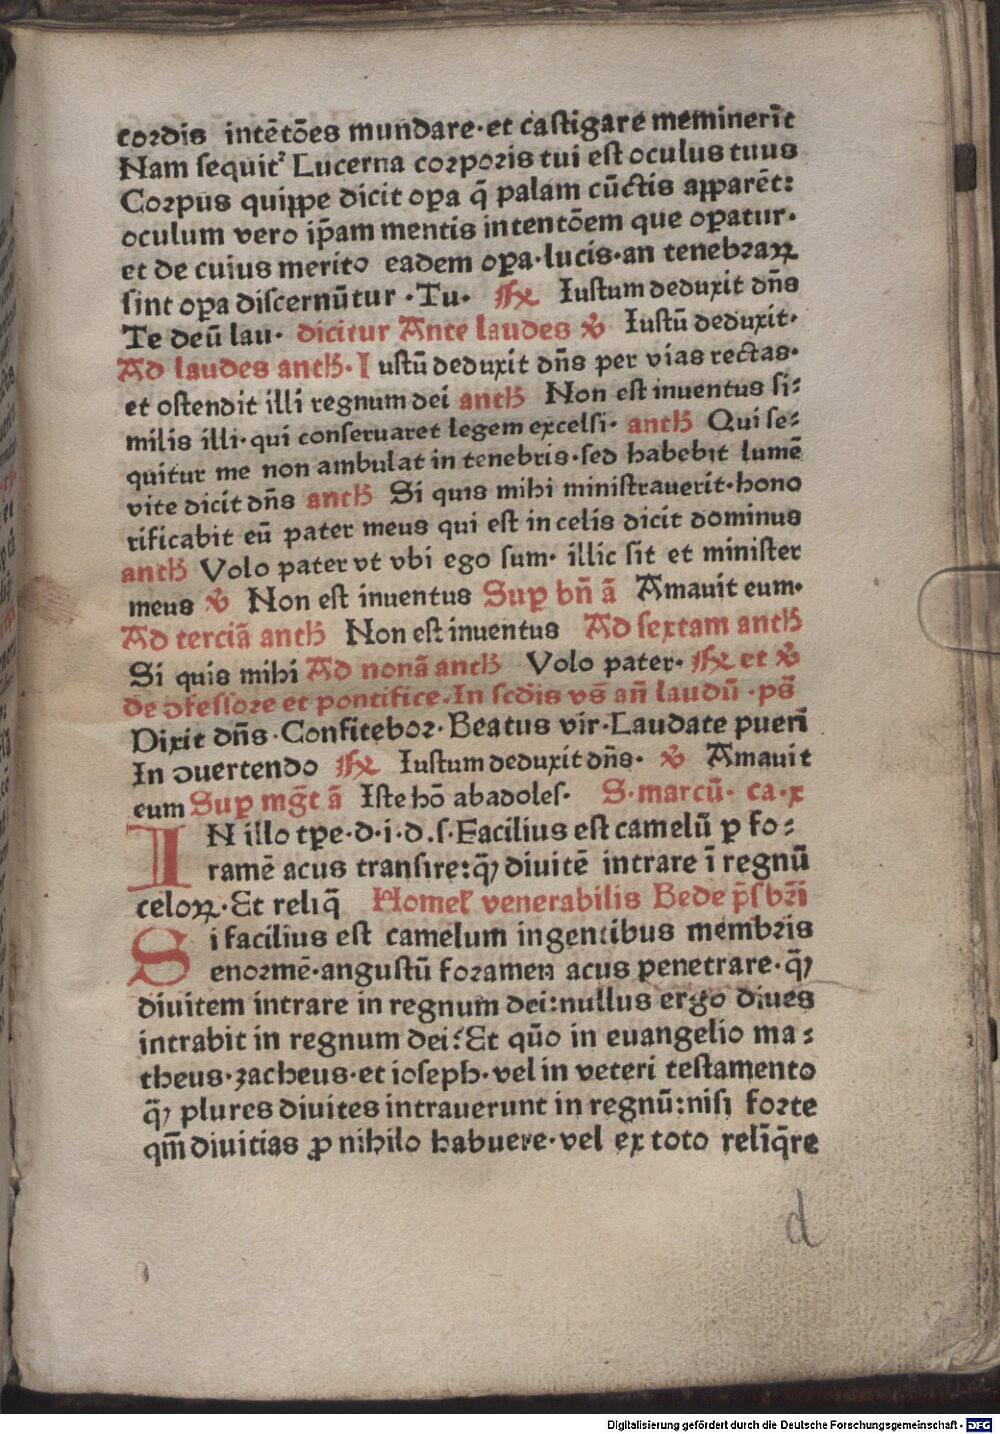 cordis intētōes mundare·et castigare meminerīt
Nam sequit᷑ Lucerna corporis tui est oculus tuus
Corpus quippe dicit oꝑa q̄ palam cūctis apparēt:
oculum vero ip̄am mentis intentōem que oꝑatur·
et de cuius merito eadem oꝑa·lucis·an tenebraꝝ
sint oꝑa discernūtur ·Tu· ℟ Iustum deduxit dn̄s
Te deū lau· dicitur Ante laudes ℣ Iustū deduxit·
Ad laudes anth̄· Iustū deduxit dn̄s per vias rectas·
et ostendit illi regnum dei anth̄ Non est inuentus si⸗
milis illi·qui conseruaret legem excelsi· anth̄ Qui se⸗
quitur me non ambulat in tenebris·sed habebit lumē
vite dicit dn̄s anth̄ Si quis mihi ministrauerit·hono
rificabit eū pater meus qui est in celis dicit dominus
anth̄ Volo pater vt vbi ego sum· illic sit et minister
meus ℣ Non est inuentus Suꝑ bn̄ ā Amauit eum·
Ad terciā anth̄ Non est inuentus Ad sextam anth̄
Si quis mihi Ad nonā anth̄ Volo pater· ℟ et ℣
de ꝯfessore et pontifice·In scd̄is vs̄ an̄ laudū ·ps̄
Dixit dn̄s·Confitebor·Beatus vir·Laudate pueri
In ꝯuertendo ℟ Iustum deduxit dn̄s· ℣ Amauit
eum Suꝑ mḡt ā Iste hō abadoles· S·marcū· ca·x
IN illo tꝑe·d·i·d·s·Facilius est camelū ꝑ fo⸗
ramē acus transire:q̄ꝫ diuitē intrare ī regnū
celoꝝ·Et reliq̄ Homel᷑ venerabilis Bede p̄sbr̄i
Si facilius est camelum ingentibus membris
enormē·angustū foramen acus penetrare·q̄ꝫ
diuitem intrare in regnum dei:nullus ergo diues
intrabit in regnum dei? Et quō in euangelio ma⸗
theus·zacheus·et ioseph·vel in veteri testamento
q̄ꝫ plures diuites intrauerunt in regnū:nisi forte
qm̄ diuitias ꝓ nihilo habuere·vel ex toto relīq̄re
d
Digitalisierung gefördert durch die Deutsche Forschungsgemeinschaft - DFG